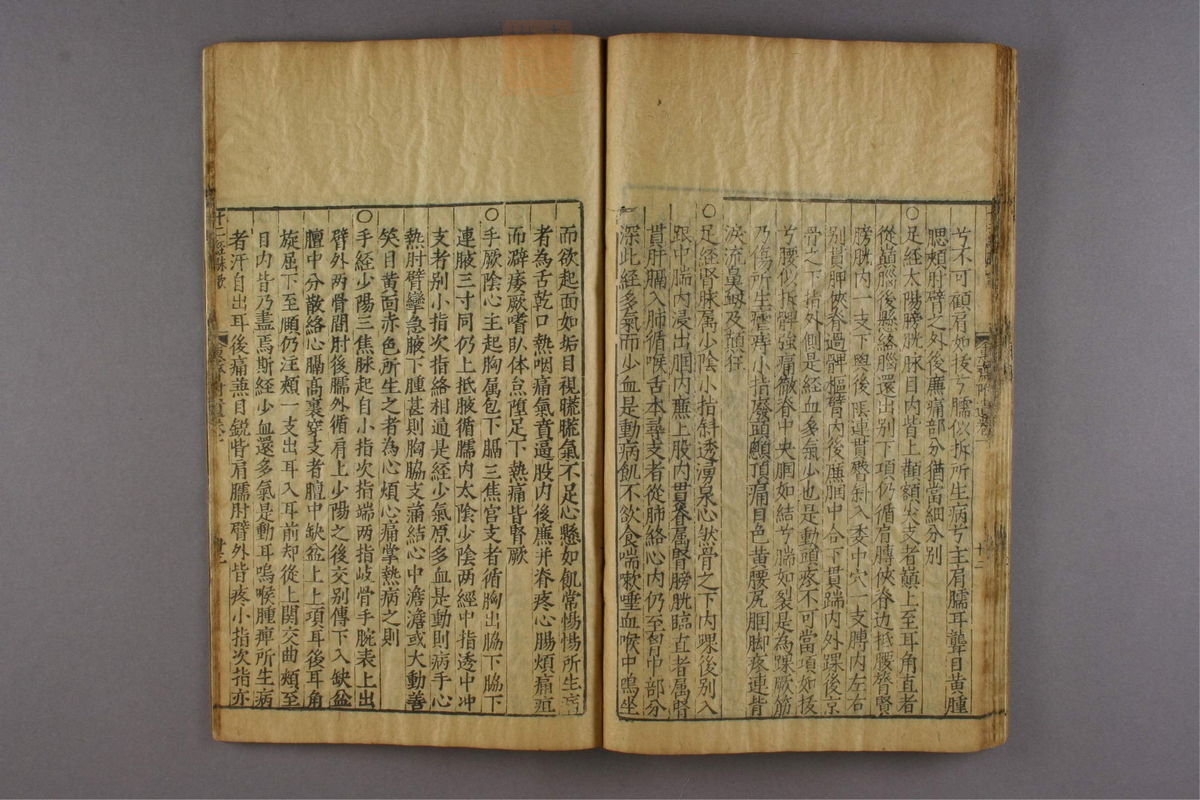 兮不可顧肩如拔兮臑似拆所生病兮主肩臑耳聾目黃腫
腮頰肘臂之外後廉痛部分猶當細分別
〇足經太陽膀胱脉目內眥上顴額尖支者巔上至耳角直者
從巔腦後懸絡腦還出別下項仍循肩膊俠脊边抵腰膂腎
膀胱內一支下與後陰連貫臀斜入委中穴一支膊內左右
別貫胛俠脊過髀樞臂內後廉膕中合下貫踹內外踝後京
骨之下指外側是經血多氣少也是動頭疼不可當項如拔
兮腰似折髀強痛徹脊中央膕如結兮踹如裂是為踝厥筋
乃傷所生瘧痔小指廢頭顖頂痛目色黃腰尻膕脚疼連背
淚流鼻衄及顛狂
〇足經腎脉属少陰小指斜透湧泉心然骨之下內踝後別入
跟中腨內浸出膕內廉上股內貫脊属腎膀胱臨直者属腎
貫肝膈入肺循喉舌本尋支者從肺絡心內仍至胷中部分
深此經多氣而少血是動病飢不欲食喘嗽唾血喉中鳴坐
而欲起面如垢目視䀮䀮氣不足心懸如飢常惕惕所生病
者為舌乾口熱咽痛氣賁逼股內後廉并脊疼心腸煩痛疸
而澼痿厥嗜臥体怠墮足下熱痛皆腎厥
〇手厥陰心主起胸属包下膈三焦宫支者循胸出脇下脇下
連腋三寸同仍上抵腋循臑內太陰少陰两經中指透中冲
支者別小指次指絡相通是經少氣原多血是動則病手心
熱肘臂攣急腋下腫甚則胸脇支滿結心中澹澹或大動善
笑目黃面赤色所生之者為心煩心痛掌熱病之則
〇手經少陽三焦脉起自小指次指端两指岐骨手腕表上出
臂外两骨間肘後臑外循肩上少陽之後交別傳下入缺盆
膻中分散絡心膈髙裏穿支者膻中缺盆上上項耳後耳角
旋屈下至頤仍注頰一支出耳入耳前却從上關交曲頰至
目內眥乃盡焉斯經少血還多氣是動耳鳴喉腫痺所生病
者汗自出耳後痛兼目銳眥肩臑肘臂外皆疼小指次指亦
十二經脉歌